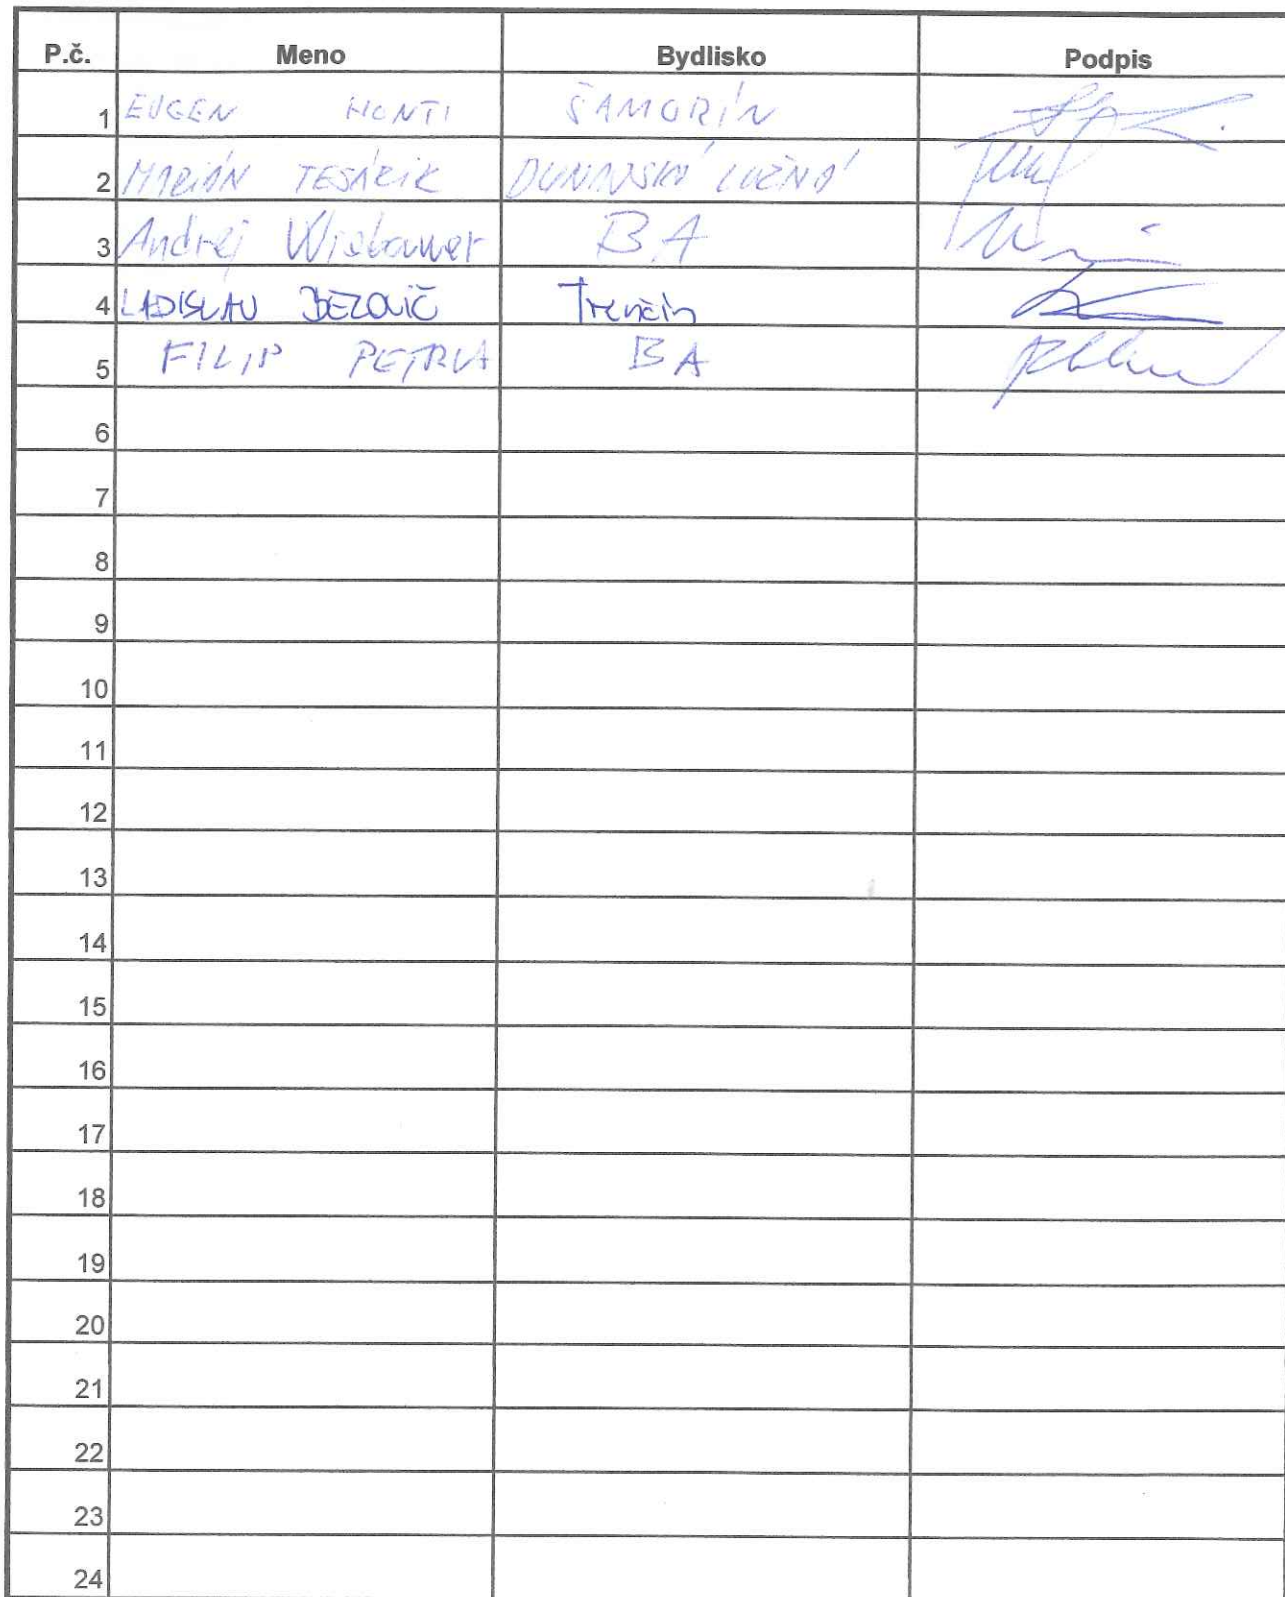 P.č. Meno Bydlisko Podpis
1 EUGEN HONTI ŠAMORÍN
2 MARIÁN TESÁRIK DUNAJSKÁ LUŽNÁ
3 Andrej BA
4 LADISLAV BEZOVIČ Trenčín
5 FILIP PETRLA BA
6
7
8
9
10
11
12
13
14
15
16
17
18
19
20
21
22
23
24